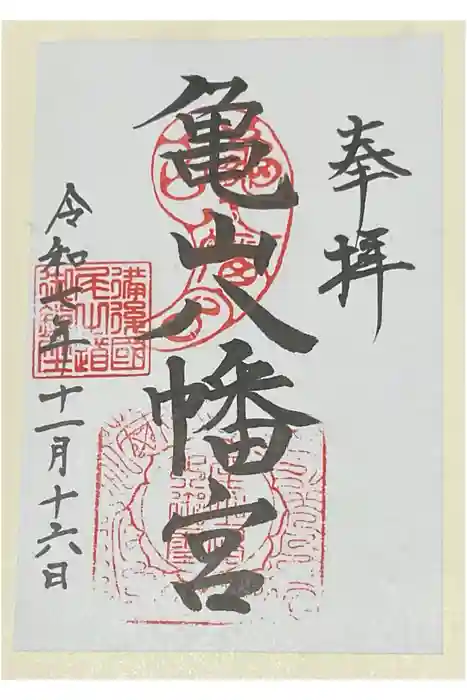 奉拝
亀山八幡宮
令和七年十一月十六日
備後國
尾道